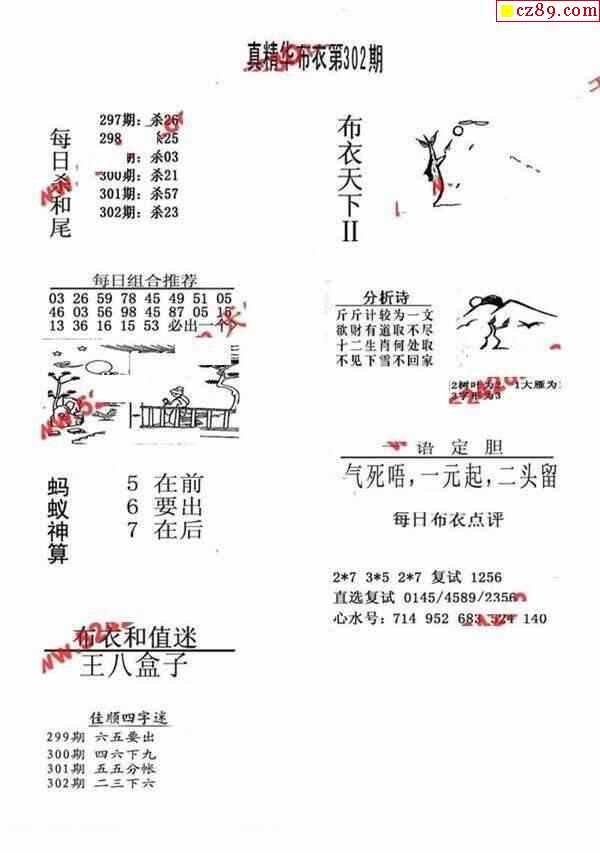 cz89.com
真精华布衣第302期
每日杀和尾
297期: 杀26
298 25
期: 杀03
300期: 杀21
301期: 杀57
302期: 杀23
布衣天下II
每日组合推荐
03 26 59 78 45 49 51 05
46 03 56 98 45 87 05 15
13 36 16 15 53 必出一个
分析诗
斤斤计较为一文
欲财有道取不尽
十二生肖何处取
不见下雪不回家
2树叶为2 1大雁为
3字形为3
蚂蚁神算
5 在前
6 要出
7 在后
一语定胆
气死唔,一元起,二头留
每日布衣点评
2*7 3*5 2*7 复试 1256
直选复试 0145/4589/2356
心水号: 714 952 683 324 140
布衣和值迷
王八盒子
佳顺四字迷
299期 六五要出
300期 四六下九
301期 五五分帐
302期 二三下六